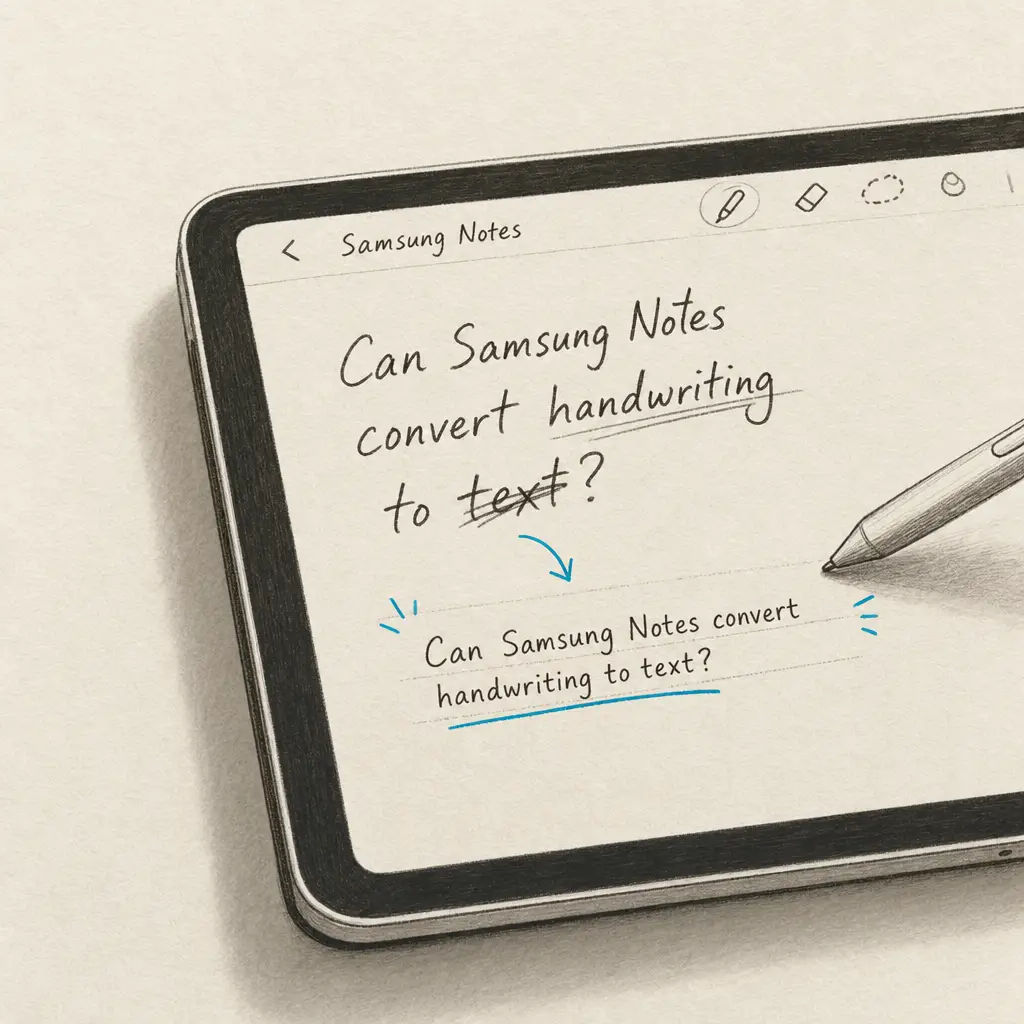 Samsung Notes
Can Samsung Notes
convert handwriting
to text?
Can Samsung Notes convert
handwriting to text?